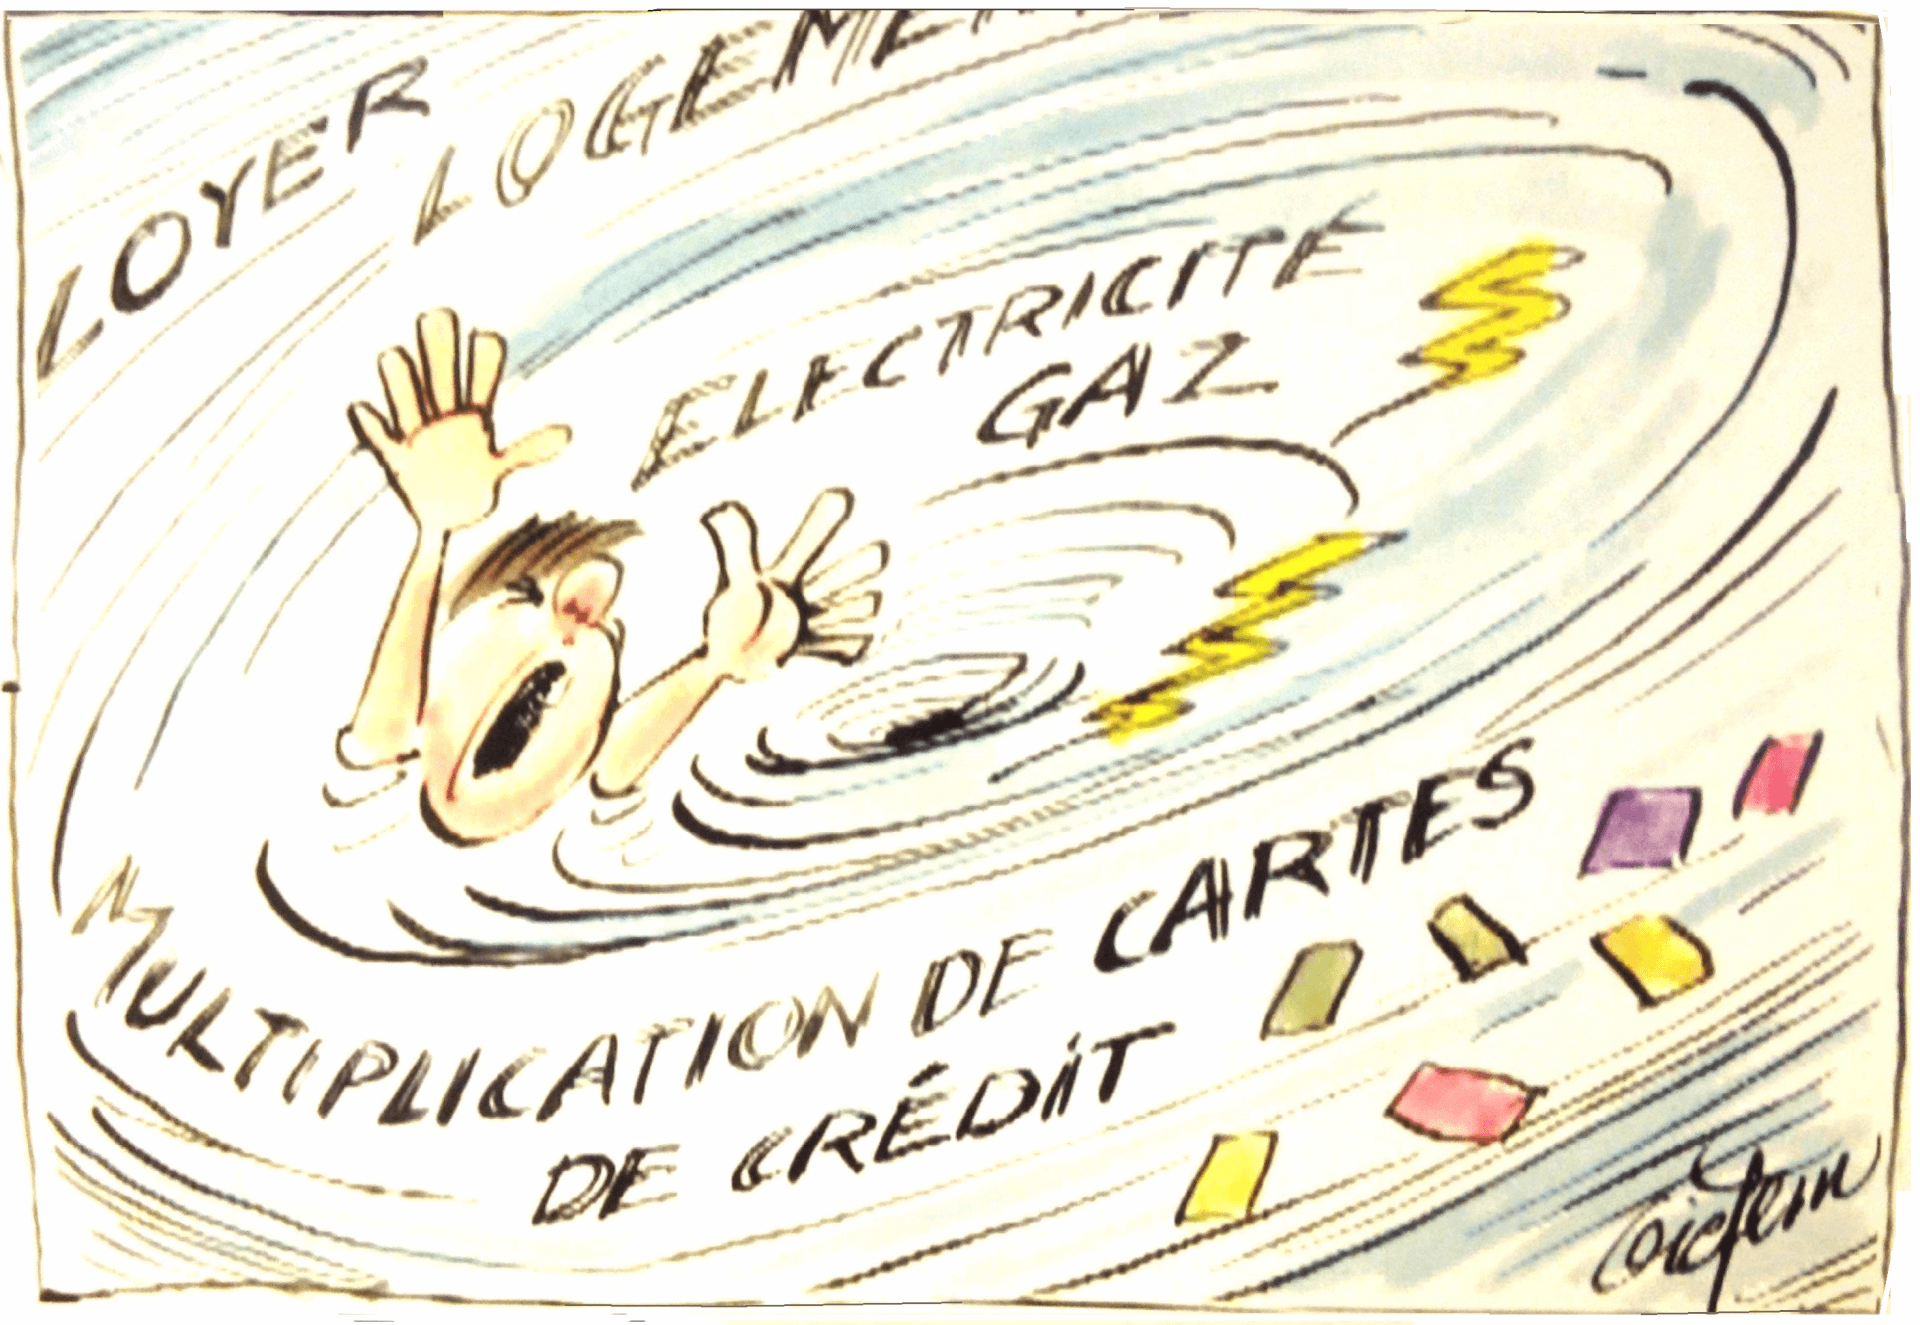 LOYER
LOGEMEN
ELECTRICITÉ
GAZ
MULTIPLICATION DE CARTES
DE CRÉDIT